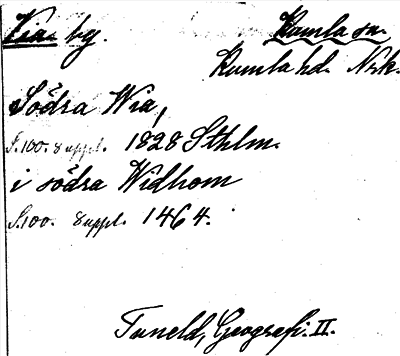 Via by. Kumla sn.
Kumla hd. Nrk.
Södra Wia,
S.100. suppl. 1828 Sthlm.
i södra Widhom
S.100. suppl. 1464.
Tuneld, Geografi. II.